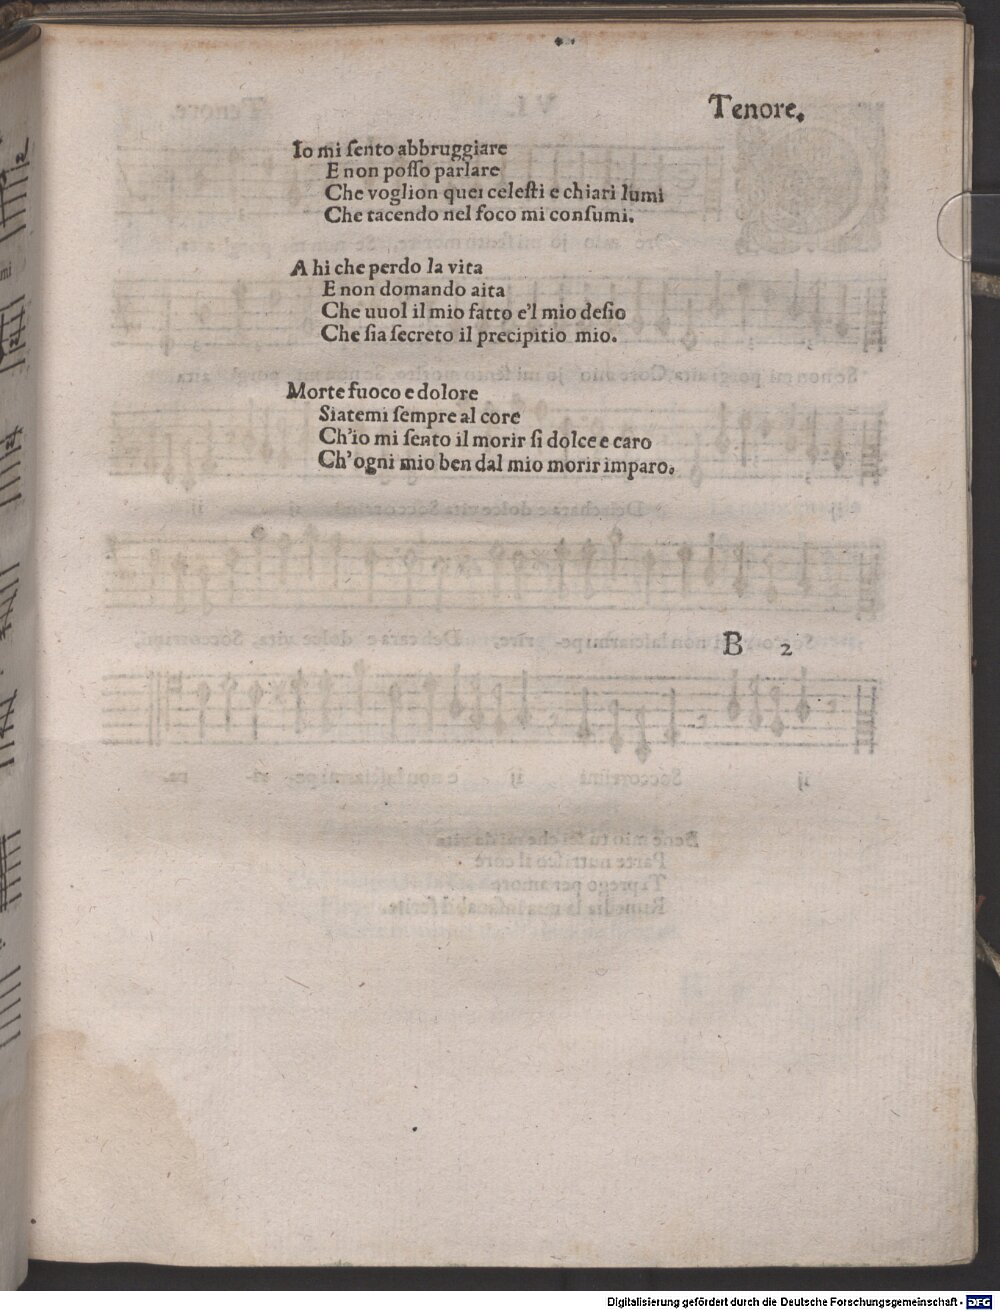 Tenore.
Io mi ſento abbruggiare
E non poſſo parlare
Che voglion quei celeſti e chiari lumi
Che tacendo nel foco mi conſumi.
A hi che perdo la vita
E non domando aita
Che uuol il mio fatto e'l mio deſio
Che ſia ſecreto il precipitio mio.
Morte fuoco e dolore
Siatemi ſempre al core
Ch'io mi ſento il morir ſi dolce e caro
Ch'ogni mio ben dal mio morir imparo.
B 2
Digitalisierung gefördert durch die Deutsche Forschungsgemeinschaft - DFG